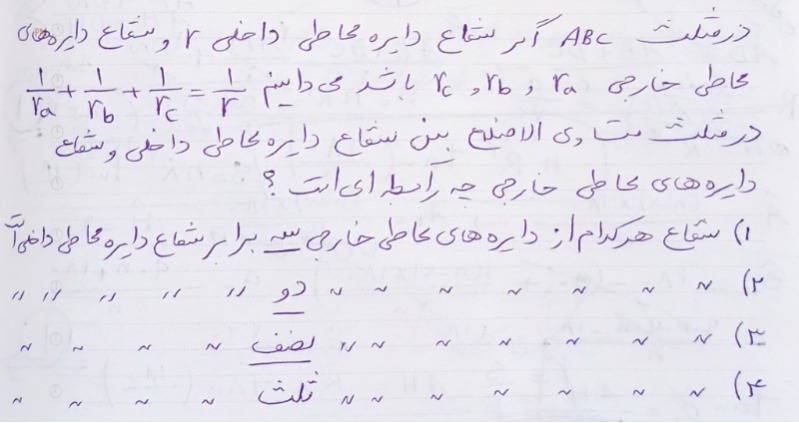 در مثلث ABC اگر شعاع دایره محاطی داخلی r و شعاع دایره‌های
محاطی خارجی ra ، rb ، rc باشد می‌دانیم 1/ra + 1/rb + 1/rc = 1/r
در مثلث متساوی الاضلاع بین شعاع دایره محاطی داخلی و شعاع
دایره‌های محاطی خارجی چه رابطه ای است ؟
۱) شعاع هرکدام از دایره‌های محاطی خارجی سه برابر شعاع دایره محاطی داخلی است
۲) 〃 〃 〃 〃 〃 〃 〃 دو 〃 〃 〃 〃 〃 〃
۳) 〃 〃 〃 〃 〃 〃 〃 نصف 〃 〃 〃 〃 〃
۴) 〃 〃 〃 〃 〃 〃 〃 ثلث 〃 〃 〃 〃 〃